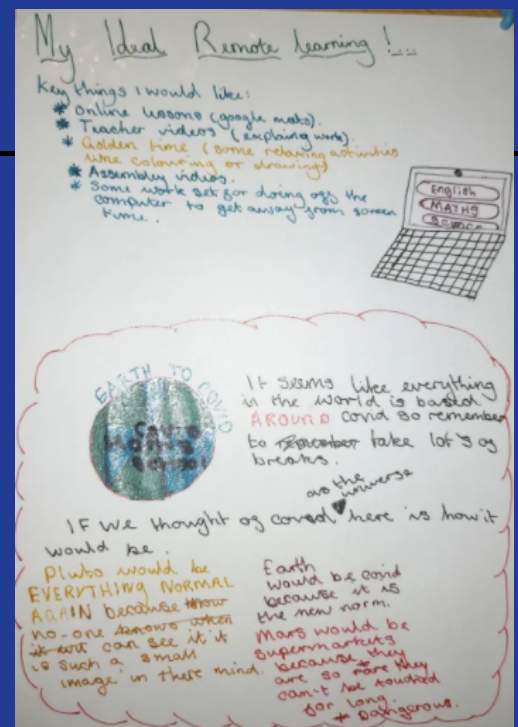 My Ideal Remote learning!...
Key things I would like:
* Online lessons (google meets).
* Teacher videos (explaing work).
* Golden time (some relaxing activities
like colouring or drawing)
* Assembly videos.
* Some work set for doing off the
computer to get away from screen
time.
English
MATHS
Science
EARTH TO COVID
It seems like everything
in the world is based
AROUND covid so remember
to remember take lot's of
breaks.
as the
universe
IF we thought of covid here is how it
would be.
Pluto would be
EVERYTHING NORMAL
AGAIN because
no-one knows when
it can see it it
is such a small
image in there mind.
Earth
would be covid
because it is
the new norm.
Mars would be
supermarkets
because they
are so rare they
can't be
for long.
+ Dangerous.